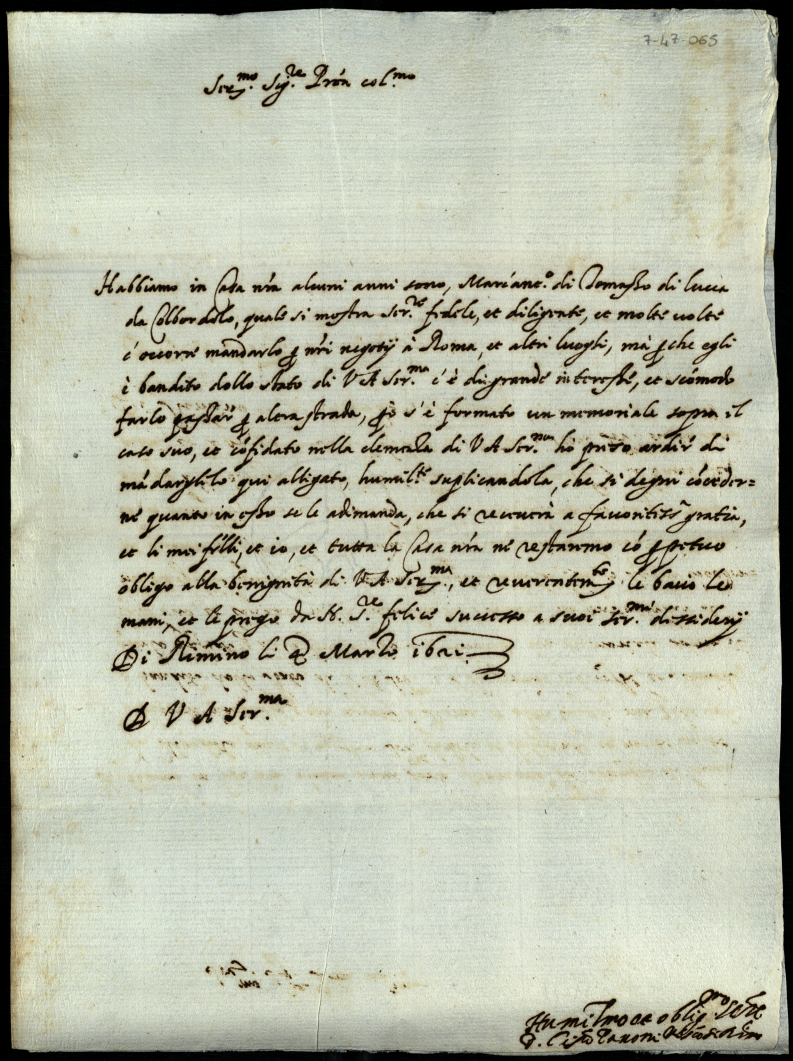 7-47-065
Ser.mo Sig.re Prõn col.mo
Habbiamo in Casa nrã alcuni anni sono, Marcant.o di Tomasso di lucca
da Colbordolo, quale si mostra ser.re fedele, et diligente, et molte volte
c'occorre mandarlo ꝑ nri negotij à Roma, et altri luoghi, mà ꝑche egli
è bandito dello stato di V A Ser.ma c'è di grande interesse, et scõmodo
farlo passar ꝑ altra strada, ꝑò s'è formato un memoriale sopra il
caso suo, et cõfidato nella clemenza di V A Ser.ma ho preso ardir di
mãdarglilo qui alligato, humil.te suplicandola, che si degni cõceder=
ne quanto in esso se le adimanda, che si receverà a favoritiss.a gratia,
et li miei flli, et io, et tutta la Casa nrã ne restaremo cõ ꝑpetuo
obligo alla benignità di V A Ser.ma, et reverentem.te le bacio le
mani, et le prego da N. S.re felice successo a suoi ser.mi dessiderij
Di Rimino li 4 Marzo 1621
D V A Ser.ma
Humilmo et oblig.mo Se.re